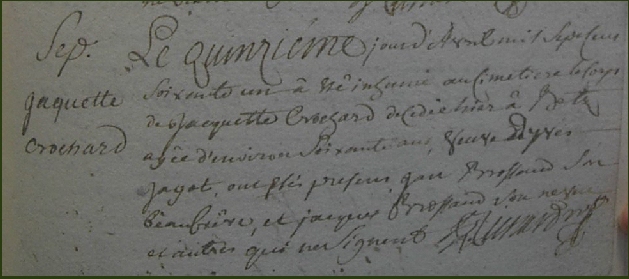 Sep.
jaquette
Crochard
Le quinzième jour d'Avril mil sept cent
soixante un à été inhumé au Cimetiere le Corps
de jacquette Crochard decedée hier à
agée d'environ soixante ans, veuve d'yves
jagot, ont étés presens jean Brossaud son
beaufrère, et jacques Brossaud son neveu
et autres qui ne signent